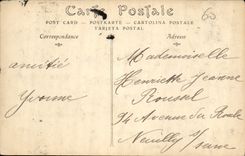 Carte Postale
POST CARD — POSTKARTE — CARTOLINA POSTALE
TARJETA POSTAL
Correspondance
Adresse
60
amitié
Yvonne
Mademoiselle
Henriette Jeanne
Roussel
94 Avenue du Roule
Neuilly s/Seine